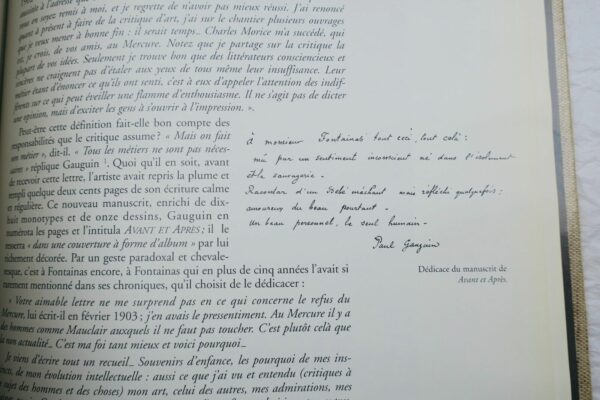 en soyez remis à moi, et je regrette de n'avoir pas mieux réussi. J'ai renoncé
quant à présent à faire de la critique d'art, j'ai sur le chantier plusieurs ouvrages
que je veux mener à bonne fin : il serait temps... Charles Morice m'a succédé, qui
est, je crois, de vos amis, au Mercure. Notez que je partage sur la critique la
plupart de vos idées. Seulement je trouve bon que des littérateurs consciencieux et
sincères ne craignent pas d'étaler aux yeux de tous même leur insuffisance. Leur
métier étant d'énoncer ce qu'ils ont senti, c'est à eux d'appeler l'attention des indif-
férents sur ce qui peut éveiller une flamme d'enthousiasme. Il ne s'agit pas de dicter
une opinion, mais d'exciter les gens à s'ouvrir à l'impression. ».
Peut-être cette définition fait-elle bon compte des
responsabilités que le critique assume ? « Mais on fait
son métier », dit-il. « Tous les métiers ne sont pas néces-
saires » réplique Gauguin ¹. Quoi qu'il en soit, avant
de recevoir cette lettre, l'artiste avait repris la plume et
rempli quelque deux cents pages de son écriture calme
et régulière. Ce nouveau manuscrit, enrichi de dix-
huit monotypes et de onze dessins, Gauguin en
numérota les pages et l'intitula AVANT ET APRÈS ; il le
resserra « dans une couverture à forme d'album » par lui
richement décorée. Par un geste paradoxal et chevale-
resque, c'est à Fontainas encore, à Fontainas qui en plus de cinq années l'avait si
rarement mentionné dans ses chroniques, qu'il choisit de le dédicacer :
« Votre aimable lettre ne me surprend pas en ce qui concerne le refus du
Mercure, lui écrit-il en février 1903 ; j'en avais le pressentiment. Au Mercure il y a
des hommes comme Mauclair auxquels il ne faut pas toucher. C'est plutôt celà que
la non actualité_ C'est ma foi tant mieux et voici pourquoi_
Je viens d'écrire tout un recueil_ Souvenirs d'enfance, les pourquoi de mes ins-
tincts, de mon évolution intellectuelle : aussi ce que j'ai vu et entendu (critiques à
ce sujet des hommes et des choses) mon art, celui des autres, mes admirations, mes
À monsieur Fontainas tout ceci, tout celà :
mû par un sentiment inconscient né dans l'isolement
et la sauvagerie -
Racontar d'un Bébé méchant mais réfléchi quelquefois ;
amoureux du beau pourtant -
Un beau personnel, le seul humain -
Paul Gauguin
Dédicace du manuscrit de
Avant et Après.